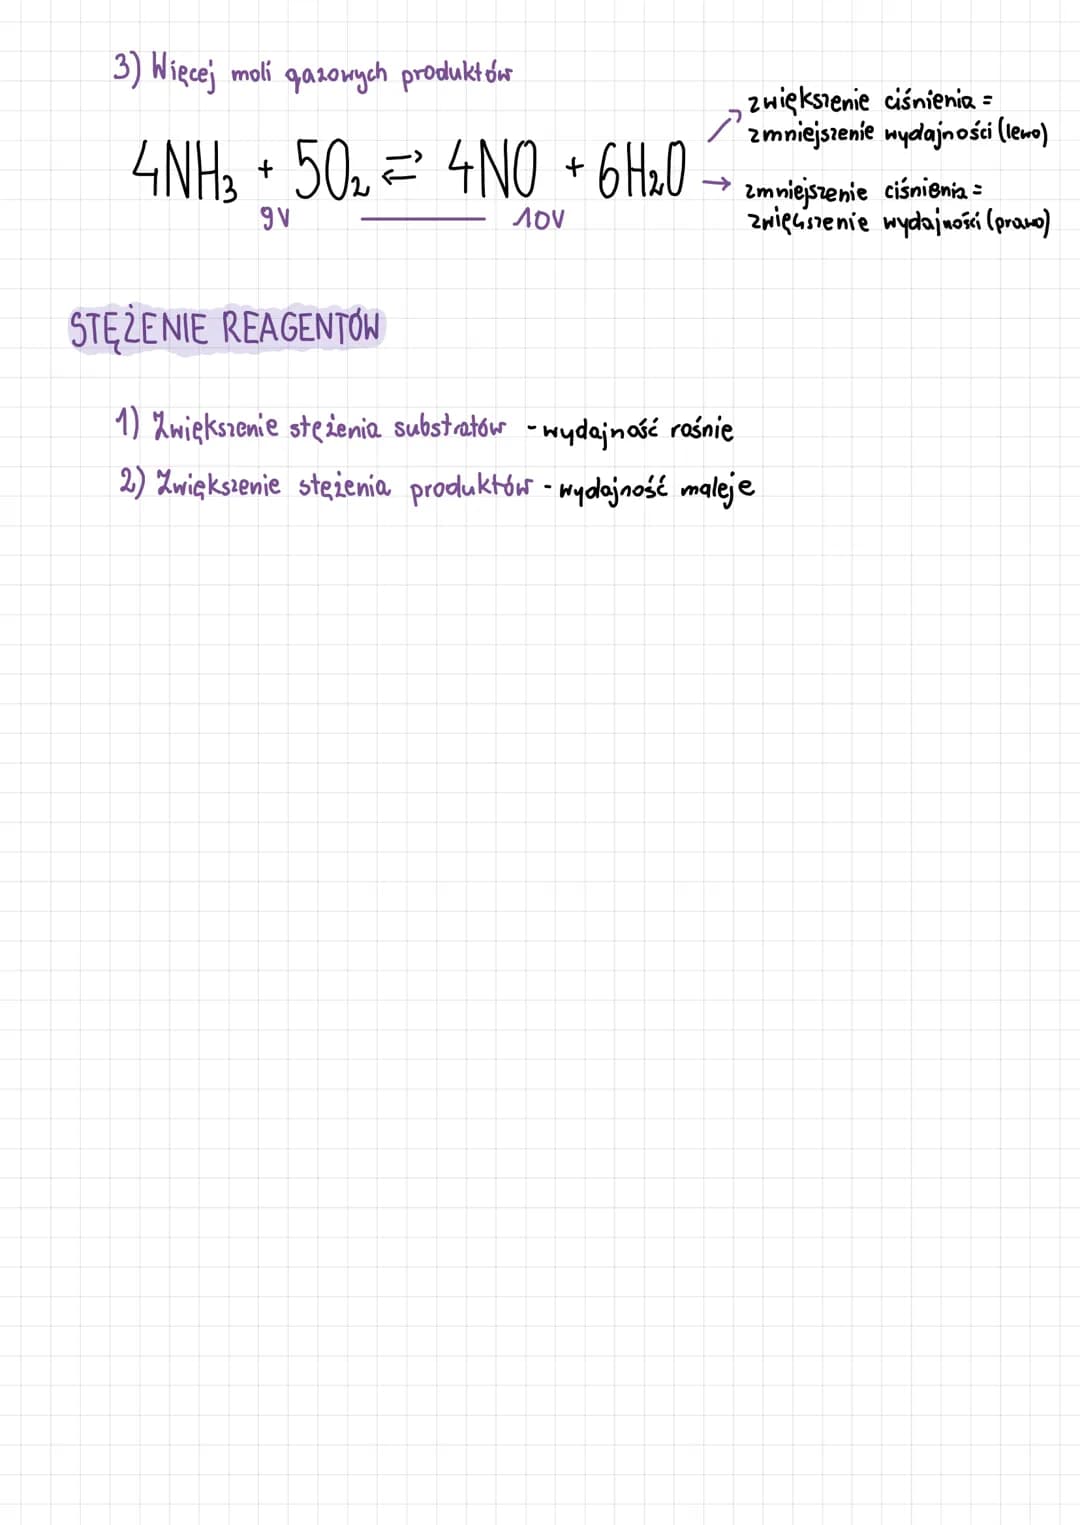 3) Więcej moli gazowych produktów
zwiększenie ciśnienia =
zmniejszenie wydajności (lewo)
4NH₃ + 5O₂ ⇄ 4NO + 6H₂O
9V 10V
→ zmniejszenie ciśnienia =
zwiększenie wydajności (prawo)
STĘŻENIE REAGENTÓW
1) Zwiększenie stężenia substratów - wydajność rośnie
2) Zwiększenie stężenia produktów - wydajność maleje